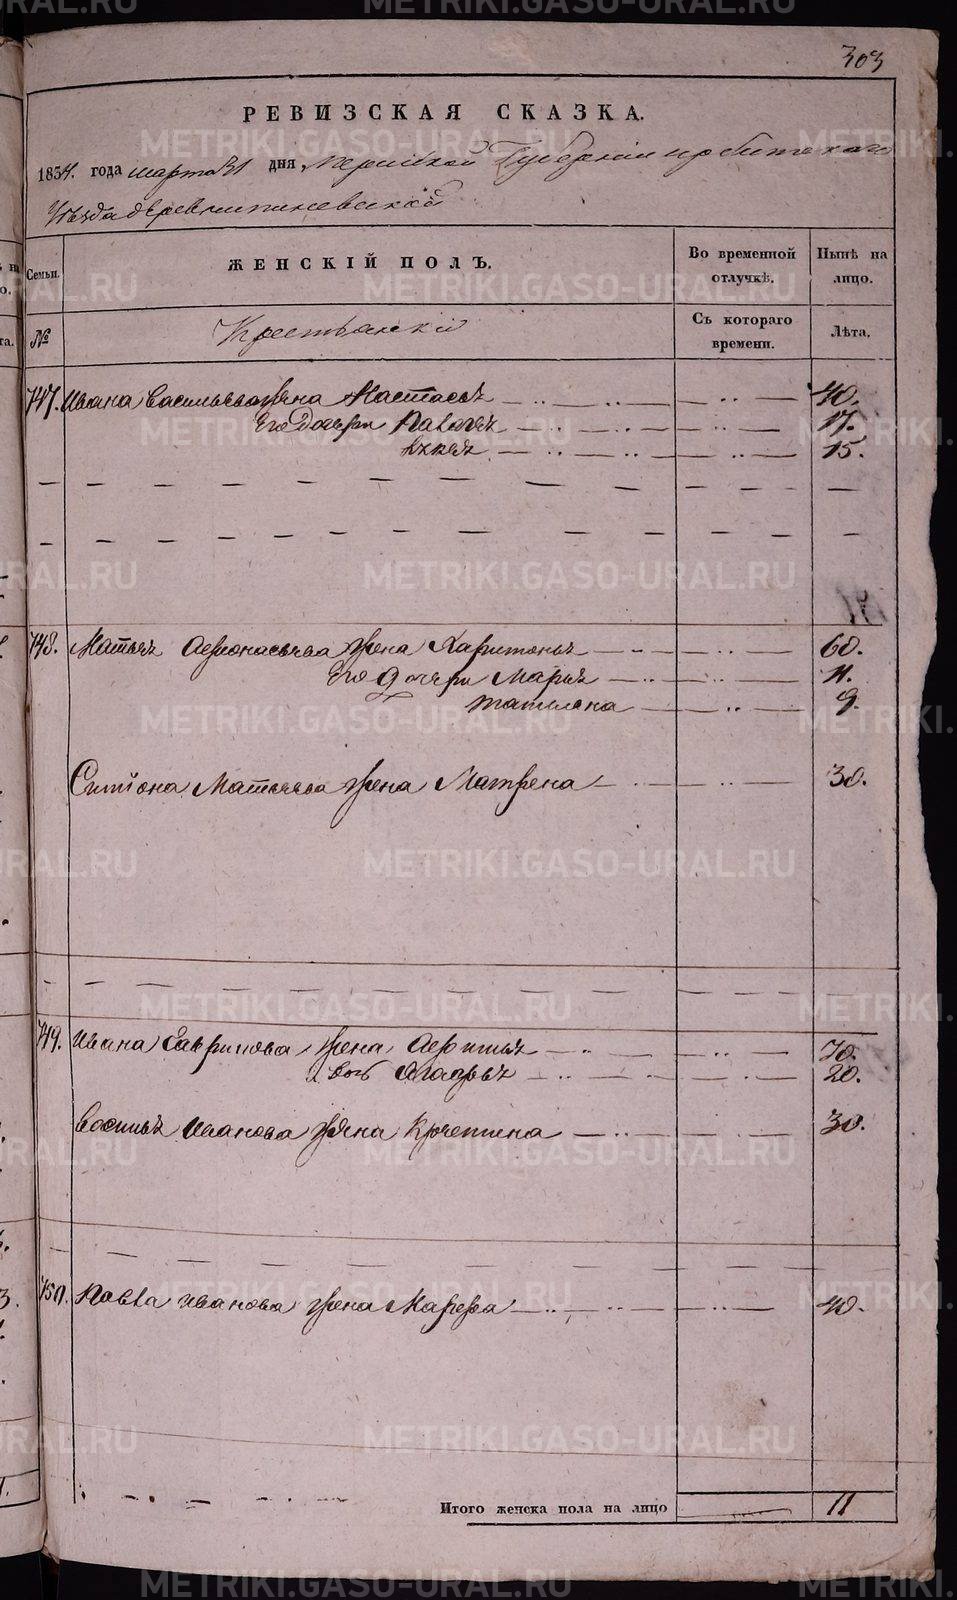 303
РЕВИЗСКАЯ СКАЗКА.
1834. года марта 31 дня Пермской Губернии ирбитскаго
Уезда деревни
Семьи. ЖЕНСКІЙ ПОЛЪ. Во временной отлучкѣ. Нынѣ на лицо.
№ Крестьянскій Съ котораго времени. Лѣта.
747. Ивана Васильева жена Настасья 40.
Его Дочери 17.
15.
748. Матвея жена Харитонья 60.
Его Дочери Марья 11.
татияна 9.
Симиона Матвеева жена Матрена 30.
749. Ивана Гаврилова жена 70.
20.
Василья Иванова жена Крестина 30.
750. Павла иванова жена Марфа 40.
Итого женска пола на лицо 11
METRIKI.GASO-URAL.RU